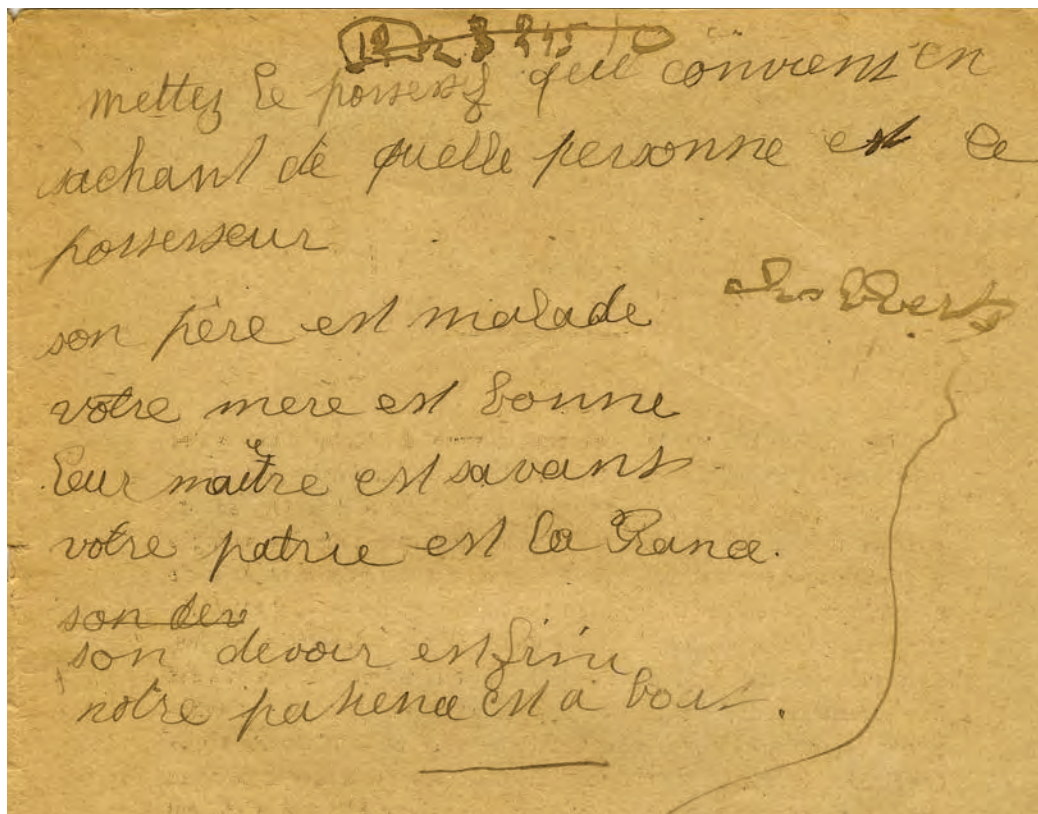 mettez le possessif qui convient en
sachant de quelle personne est le
possesseur
son père est malade
votre mère est bonne
leur maître est savant
votre patrie est la France.
son dev
son devoir est fini
notre patience est à bout.